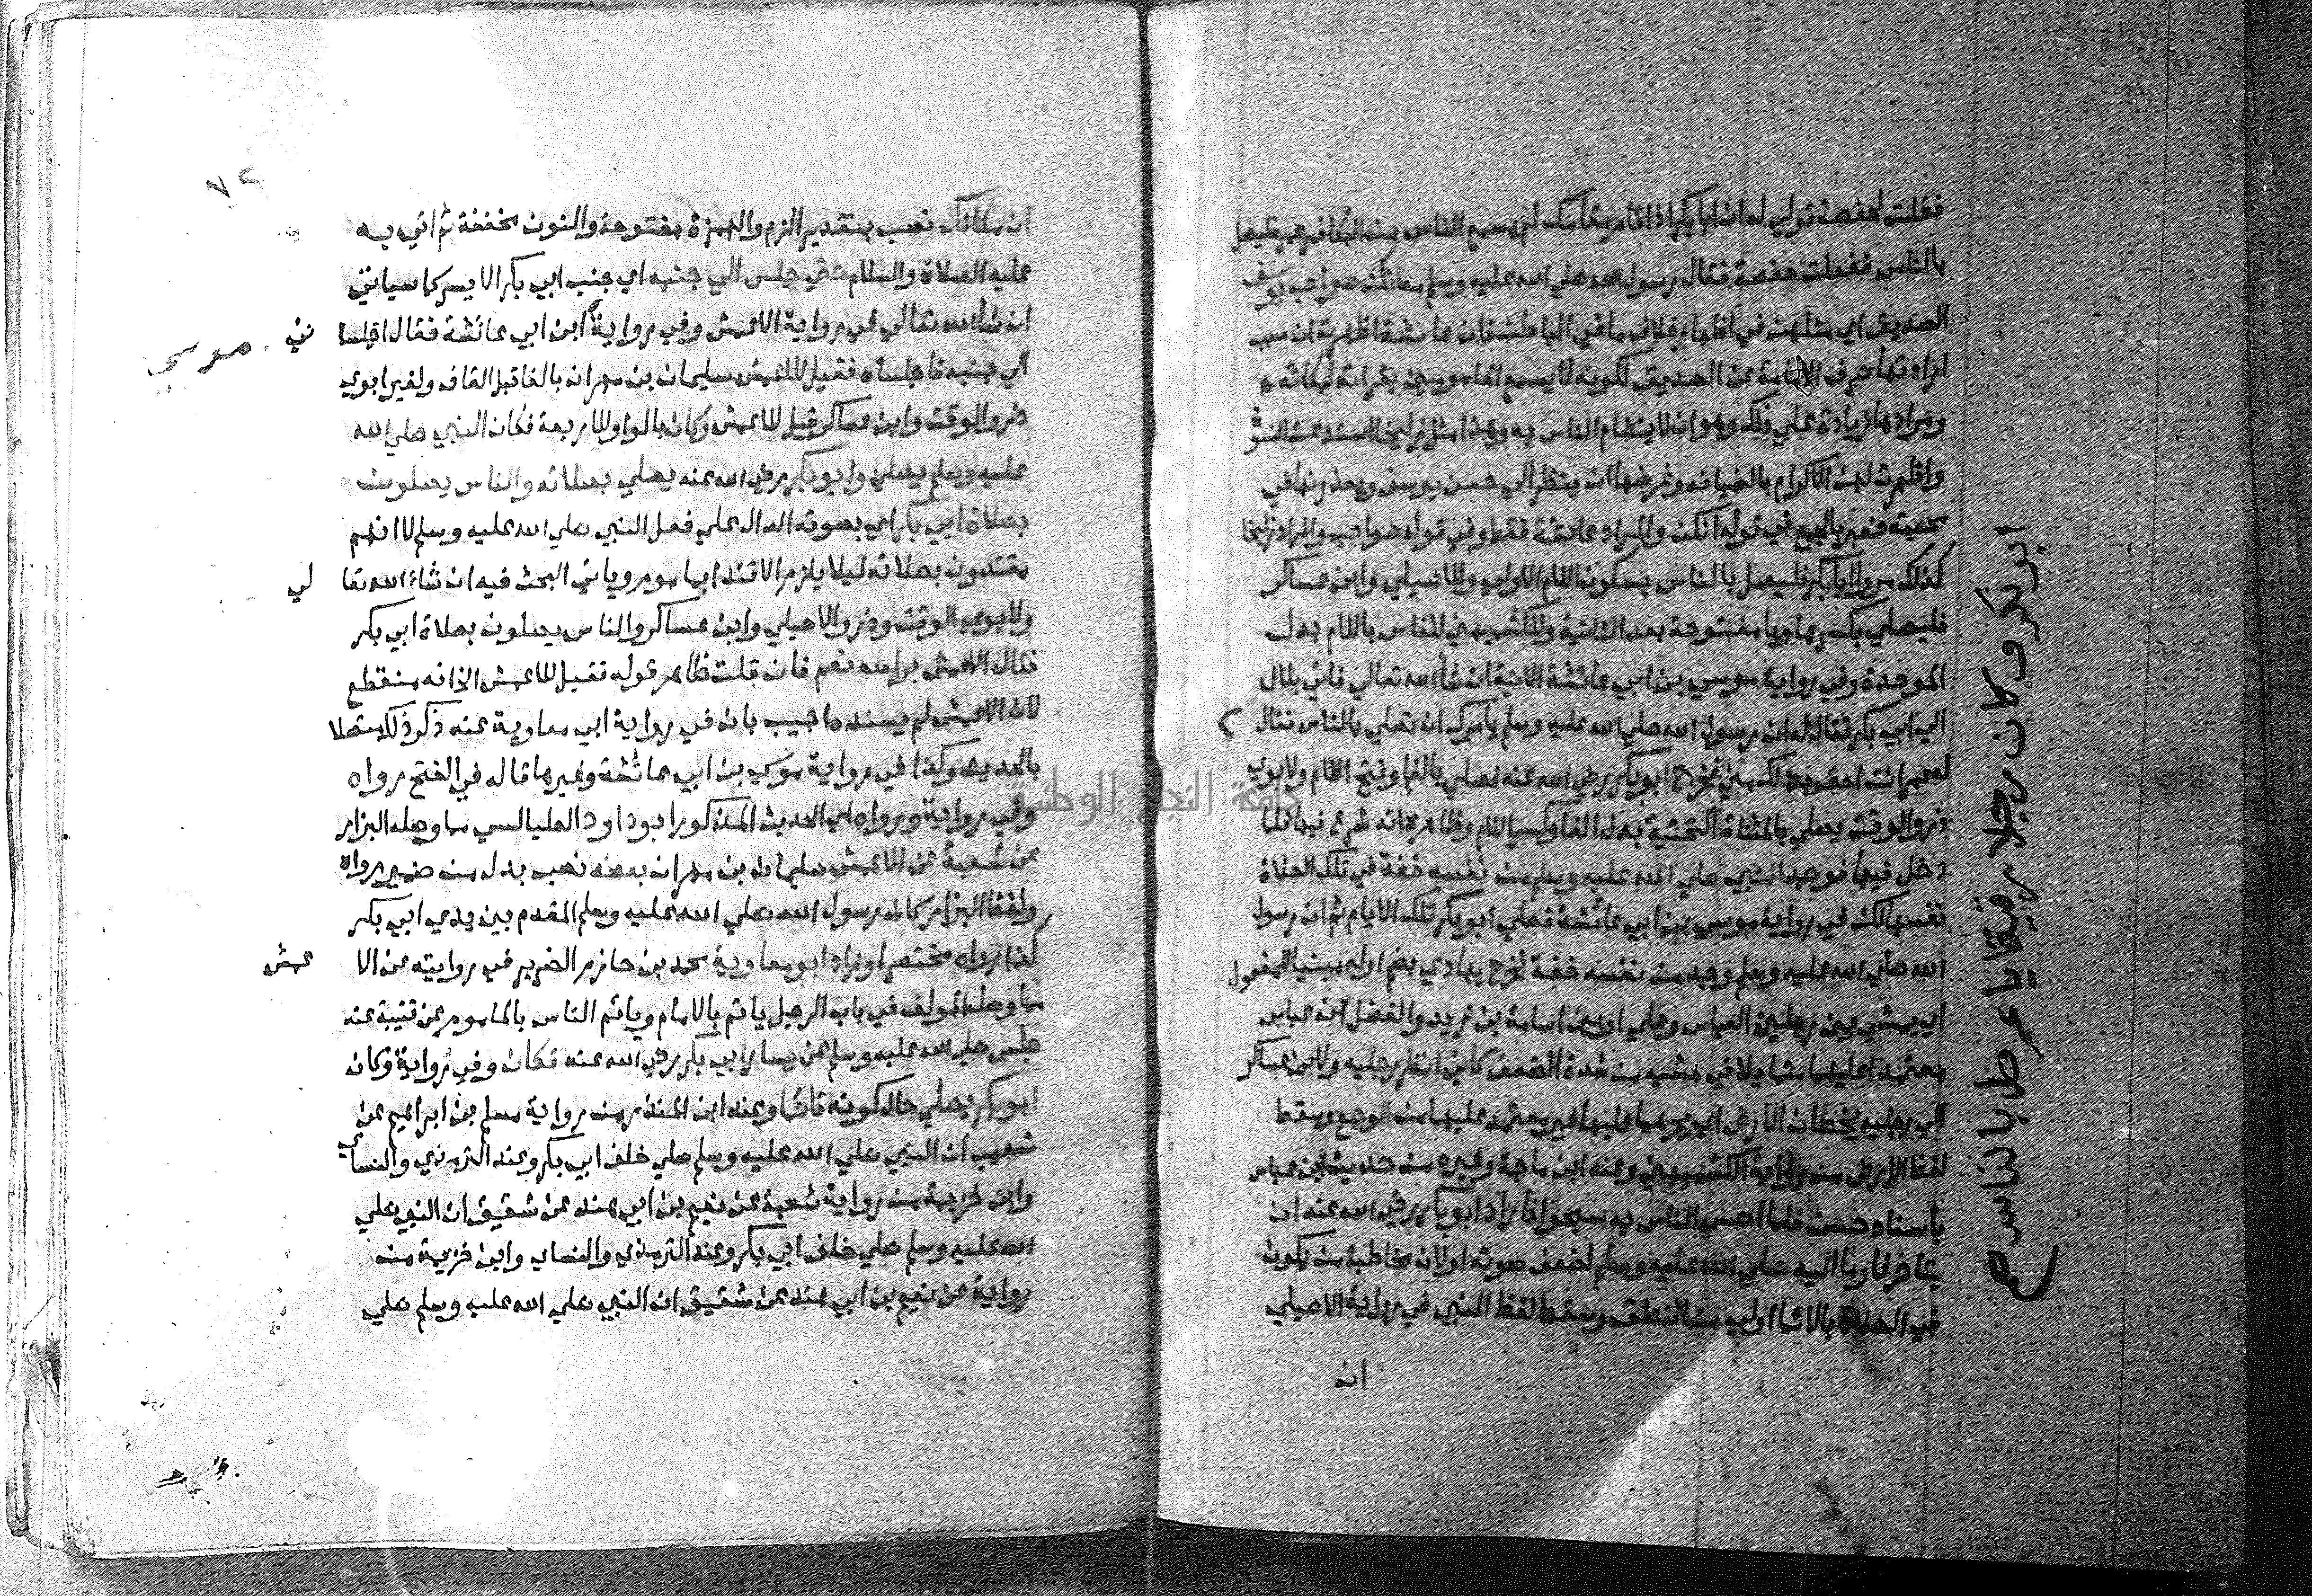 فقلت لحفصة قولي له ان ابا بكر اذا قام مقامك لم يسمع الناس من البكا فمر عمر فليصل
بالناس ففعلت حفصة فقال رسول الله صلي الله عليه وسلم مه انكن صواحب يوسف
الصديق اي مثلهن في اظهار خلاف ما في الباطن فان عائشة اظهرت ان سبب
ارادتها صرف الامامة عن الصديق لكونه لا يسمع المامومين بقراته لبكائه
ومرادها زيادة علي ذلك وهو ان لا يتشام الناس به وهذا مثل زليخا استدعت النسوة
واظهرت لهن الاكرام بالضيافه وغرضها ان ينظرن الي حسن يوسف ويعذرنها في
محبته فعبر بالجمع في قوله انكن والمراد عائشة فقط وفي قوله صواحب والمراد زليخا
كذلك مروا ابا بكر فليصل بالناس بسكون اللام الاولي وللاصيلي وابن عساكر
فليصلي بكسرها ويا مفتوحة بعد الثانية وللكشميهني للناس باللام بدل
الموحدة وفي رواية موسي بن ابي عائشة الاتية ان شاء الله تعالي فاتي بلال
الي ابي بكر فقال له ان رسول الله صلي الله عليه وسلم يأمرك ان تصلي بالناس فقال
له عمر انت احق بذلك مني فخرج ابو بكر رضي الله عنه فصلي بالفا وفتح اللام ولابوي
ذر والوقت يصلي بالمثناة التحتية بدل الفا وكسر اللام وظاهره انه شرع فيها فلما
دخل فيها فوجد النبي صلي الله عليه وسلم من نفسه خفة في تلك الصلاة
نفسها لكن في رواية موسي بن ابي عائشة فصلي ابو بكر تلك الايام ثم ان رسول
الله صلي الله عليه وسلم وجد من نفسه خفة فخرج يهادي بضم اوله مبنيا للمفعول
اي يمشي بين رجلين العباس وعلي او بين اسامة بن زيد والفضل ابن عباس
معتمدا عليهما متمايلا في مشيه من شدة الضعف كاني انظر رجليه ولابن عساكر
الي رجليه يخطان الارض اي يجرهما عليها غير معتمد عليهما من الوجع وسقط
لفظ الارض من رواية الكشميهني وعند ابن ماجة وغيره من حديث ابن عباس
باسناد حسن فلما احس الناس به سبحوا فاراد ابو بكر رضي الله عنه ان
يتاخر فاوما اليه صلي الله عليه وسلم لضعف صوته او لان مخاطبة من يكون
في الصلاة بالايما اولي من النطق وسقط لفظ النبي في رواية الاصيلي
ان
ابو بكر وكان رجلا رقيقا يا عمر صل بالناس صح
٧٢
ان مكانك نصب بتقدير الزم والهمزة مفتوحة والنون مخففة ثم اتي به
عليه الصلاة والسلام حتي جلس الي جنبه اي جنب ابي بكر الايسر كما سياتي
ان شاء الله تعالي في رواية الاعمش وفي رواية ابن ابي عائشة فقال اجلسا ني موسي
الي جنبه فاجلساه فقيل للاعمش سليمان بن مهران بالفا قبل القاف ولغير ابوي
ذر والوقت وابن عساكر قيل للاعمش وكان بالواو وللاربعة فكان النبي صلي الله
عليه وسلم يصلي وابو بكر رضي الله عنه يصلي بصلاته والناس يصلون
بصلاة ابي بكر اي بصوته الدال علي فعل النبي صلي الله عليه وسلم لا انهم
مقتدون بصلاته ليلا يلزم الاقتدا بماموم وياتي البحث فيه ان شاء الله تعا لي
ولابوي الوقت وذر والاصيلي وابن عساكر والناس يصلون بصلاة ابي بكر
فقال الاعمش براسه نعم فان قلت ظاهر قوله فقيل للاعمش الخ انه منقطع
لان الاعمش لم يسنده اجيب بان في رواية ابي معاوية عنه ذكر ذلك متصلا
بالحديث وكذا في رواية موسي بن ابي عائشة وغيرها قاله في الفتح رواه
وفي رواية ورواه اي الحديث المذكور ابو داود الطيالسي مما وصله البزار
عن شعبة عن الاعمش سليمان بن مهران بعضه نصب بدل من ضمير رواه
ولفظ البزار كان رسول الله صلي الله عليه وسلم المقدم بين يدي ابي بكر
كذا رواه مختصرا وزاد ابو معاوية محمد بن حازم الضرير في روايته عن الا عمش
مما وصله المولف في باب الرجل ياتم بالامام وياتم الناس بالماموم عن قتيبة عنه
جلس صلي الله عليه وسلم عن يسار ابي بكر رضي الله عنه فكان وفي رواية وكان
ابو بكر يصلي حال كونه قائما وعند ابن المنذر من رواية مسلم بن ابراهيم عن
شعيب ان النبي صلي الله عليه وسلم صلي خلف ابي بكر وعند الترمذي والنساي
وابن خزيمة من رواية شعبة عن نعيم بن ابي هند عن شقيق ان النبي صلي
الله عليه وسلم صلي خلف ابي بكر وعند الترمذي والنساي وابن خزيمة من
رواية عن نعيم بن ابي هند عن شقيق ان النبي صلي الله عليه وسلم صلي
جامعة النجاح الوطنية